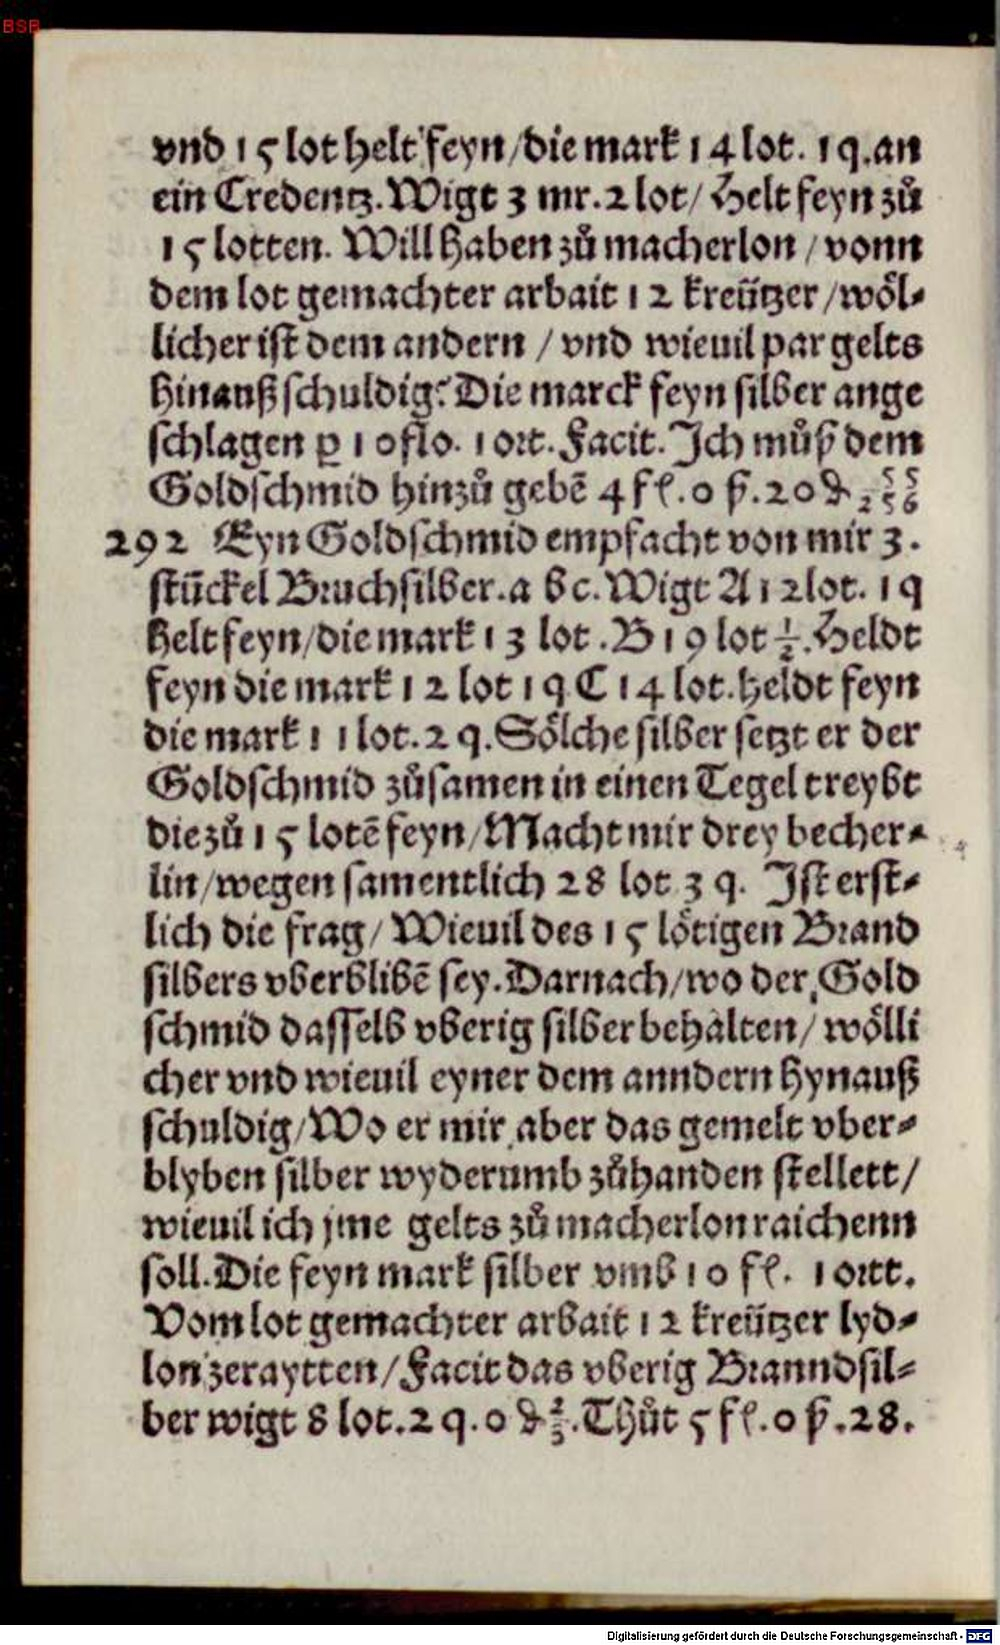 BSB
vnd 15 lot helt feyn/die mark 14 lot. 1 q. an
ein Credentz. Wigt 3 mr. 2 lot/ Helt feyn zů
15 lotten. Will haben zů macherlon / vonn
dem lot gemachter arbait 12 kreützer/wöl-
licher ist dem andern / vnd wieuil par gelts
hinauß schuldig? Die marck feyn silber ange
schlagen p 10 flo. 1 ort. Facit. Ich můß dem
Goldschmid hinzů gebē 4 fl. 0 ß. 20 ₰
292 Eyn Goldschmid empfacht von mir 3.
stückel Bruchsilber. a b c. Wigt A 12 lot. 1 q
helt feyn/die mark 13 lot. B 19 lot ½. Heldt
feyn die mark 12 lot 1 q C 14 lot. heldt feyn
die mark 11 lot. 2 q. Sölche silber setzt er der
Goldschmid zůsamen in einen Tegel treybt
die zů 15 lotē feyn/Macht mir drey becher-
lin/wegen samentlich 28 lot 3 q. Ist erst-
lich die frag/ Wieuil des 15 lötigen Brand
silbers vberblibē sey. Darnach/wo der Gold
schmid dasselb vberig silber behalten/ wölli
cher vnd wieuil eyner dem anndern hynauß
schuldig/Wo er mir aber das gemelt vber-
blyben silber wyderumb zůhanden stellett/
wieuil ich jme gelts zů macherlon raichenn
soll. Die feyn mark silber vmb 10 fl. 1 ortt.
Vom lot gemachter arbait 12 kreützer lyd-
lon zeraytten/Facit das vberig Branndsil-
ber wigt 8 lot. 2 q. 0 ₰ ⅖. Thůt 5 fl. 0 ß. 28.
Digitalisierung gefördert durch die Deutsche Forschungsgemeinschaft - DFG